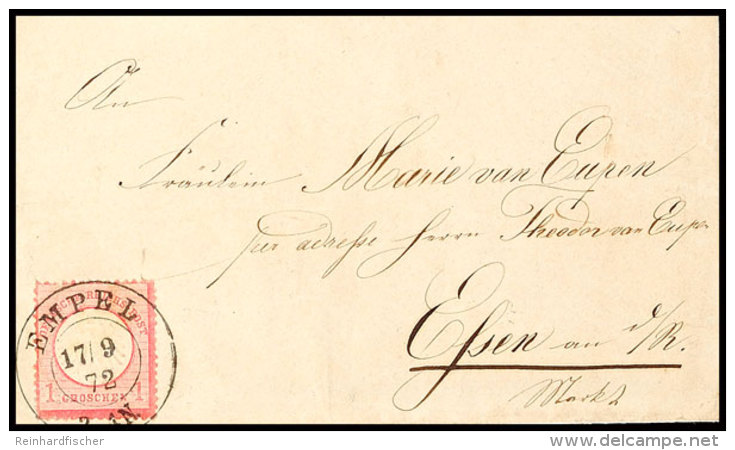 An
Fräulein Marie van Eupen
per adresse Herrn Theodor van Eupen
Essen an d/R.
Markt
DEUTSCHE REICHSPOST
EMPEL
17/9
72
1 GROSCHEN 1
2 N
Reinhardfischer
delcampe.net